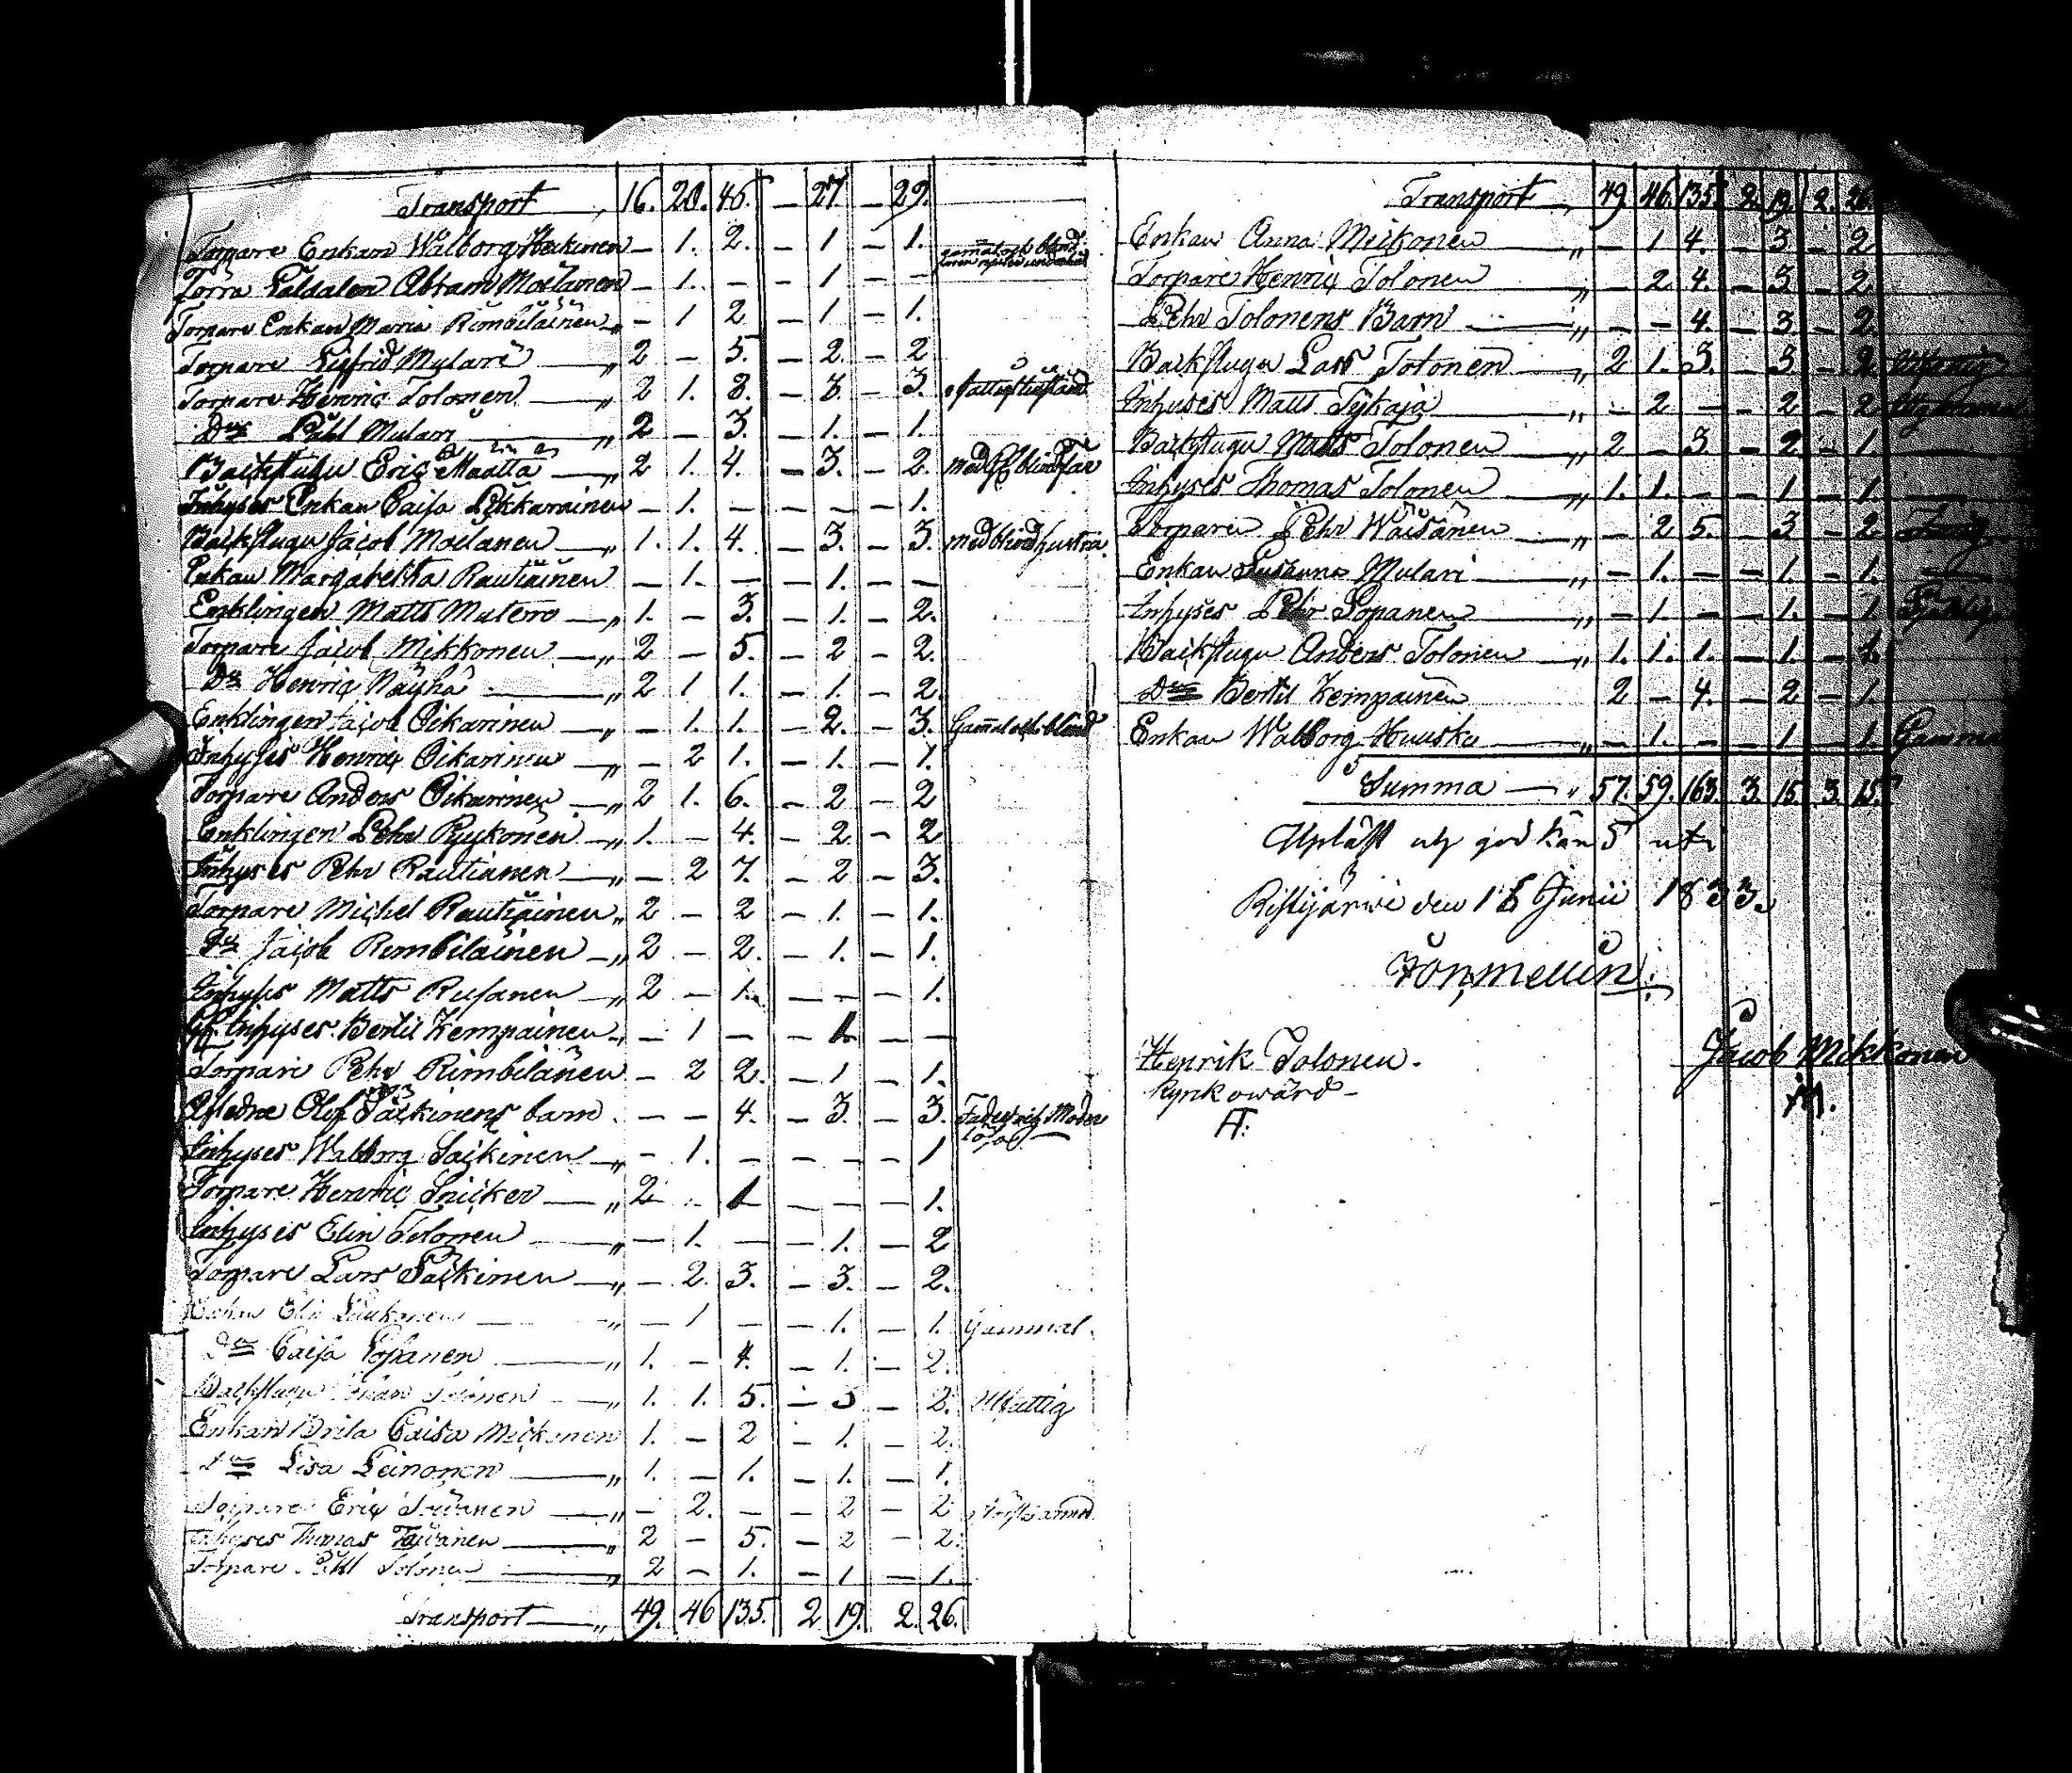 Transport 16. 20. 45. — 27 — 29.
Torpare Enkan Walborg Heikinen — 1. 2. — 1 — 1. gamal och blind
Torra Soldaten Abram Moilanen — 1. — — 1 — —
Torpare Enkan Maria Rimbiläinen „ — 1 2 — 1 — 1.
Torpare Sigfrid Mulari „ 2 — 5. — 2. — 2
Torpare Henric Tolonen „ 2 1. 8. — 3. — 3.
Dito Påhl Mulari „ 2 — 3. — 1. — 1.
Backstugu Eric Määttä „ 2 1. 4. — 3. — 2. med blind far
Inhyses Enkan Caisa Lukkarainen — 1. — — — — 1.
Backstugu Jacob Moilanen „ 1. 1. 4. — 3. — 3. med blind hustru
Enkan Margaretha Rautiainen — 1. — — 1. — —
Enklingen Matts Matero „ 1. — 3. — 1. — 2.
Torpare Jacob Mikkonen „ 2 — 5. — 2 — 2.
Do Henric Näyhä „ 2 1 1. — 1. — 2.
Enklingen Jacob Oikarinen „ — 1. 1. — 2. — 3. Gammal och blind
Inhyses Henric Oikarinen „ — 2 1. — 1. — 1.
Torpare Anders Oikarinen „ 2 1. 6. — 2 — 2
Enklingen Pehr Pyykönen „ 1. — 4. — 2 — 2
Inhyses Pehr Rautianen „ — 2 7. — 2 — 3.
Torpare Michel Rautiainen „ 2 — 2 — 1. — 1.
Do Jacob Rimbiläinen „ 2 — 2. — 1. — 1.
Inhyses Matts Rusanen „ 2 — 1. — — — 1.
Inhyses Bertil Kempainen „ — 1 — — 1. — —
Torpare Pehr Rimbiläinen — 2 2. — 1 — 1.
Afledne Olof Säikinens barn — — 4. — 3. — 3. Fader och Moder
Inhyses Walborg Säikinen „ — 1. — — — — 1
Torpare Henric Snicker „ 2 — 1 — — — 1.
Inhyses Elin Tolonen „ — 1. — — 1. — 2
Torpare Lars Säikinen „ — 2. 3. — 3. — 2.
Enkan Elin „ — 1 — — 1. — 1. Gammal.
Do Caisa Sopanen „ 1. — 4. — 1. — 2.
Backstugu Johan Tolonen „ 1. 1. 5. — 3 — 2. Utfattig
Enkan Brita Caisa Mickonen 1. — 2 — 1. — 2.
Do Lisa Leinonen „ 1. — 1. — 1. — 1.
Torpare Eric Toivanen „ — 2. — — 2 — 2
Inhyses Thomas Toivanen „ 2 — 5. — 2 — 2.
Torpare Påhl Tolonen „ 2 — 1. — 1 — 1.
Transport „ 49. 46 135. 2 19. 2. 26.
Transport 49 46. 135. 2. 19. 2. 26.
Enkan Anna Mickonen „ — 1 4. — 3 — 2
Torpare Henric Tolonen „ — 2. 4. — 3. — 2
Pehr Tolonens Barn „ — — 4. — 3. — 2
Backstugu Lars Tolonen „ 2 1. 3. — 3 — 2
Inhyses Matts Tykäjä „ — 2 — — 2 — 2
Backstugu Matts Tolonen „ 2 — 3. — 2 — 1.
Inhyses Thomas Tolonen „ 1. 1. — — 1 — 1.
Torparen Pehr Wäisänen „ — 2 5. — 3 — 2
Enkan Susanna Mulari „ — 1. — — 1. — 1.
Inhyses Pehr Sopanen „ — 1. — — 1. — 1.
Backstugu Anders Tolonen „ 1. 1. 1. — 1. — 1.
Dito Bertil Kempainen 2 — 4. — 2 — 1.
Enkan Walborg Huusko „ — 1. — — 1 — 1. Gammal
Summa „ 57. 59. 163. 3. 15. 3. 15.
Upläst och god känd uti
Ristijärwi den 16 Junii 1833.
Henrik Tolonen.
Jacob Mikkonen
Kyrkowärd
HT.
IM.